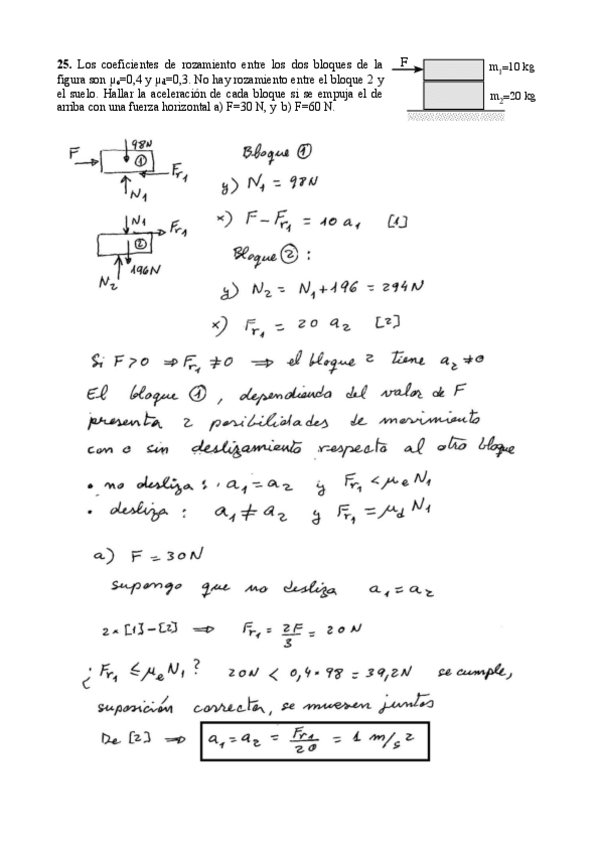 25. Los coeficientes de rozamiento entre los dos bloques de la
figura son μe=0,4 y μd=0,3. No hay rozamiento entre el bloque 2 y
el suelo. Hallar la aceleración de cada bloque si se empuja el de
arriba con una fuerza horizontal a) F=30 N, y b) F=60 N.
F
m1=10 kg
m2=20 kg
F 98N ① Fr1 N1
N1 Fr1 ② 196N N2
Bloque ①
y) N1 = 98N
x) F - Fr1 = 10 a1 [1]
Bloque ② :
y) N2 = N1 + 196 = 294N
x) Fr1 = 20 a2 [2]
Si F > 0 ⇒ Fr1 ≠ 0 ⇒ el bloque 2 tiene a2 ≠ 0
El bloque ①, dependiendo del valor de F
presenta 2 posibilidades de movimiento
con o sin deslizamiento respecto al otro bloque
• no desliza : a1 = a2 y Fr1 < μe N1
• desliza : a1 ≠ a2 y Fr1 = μd N1
a) F = 30N
supongo que no desliza a1 = a2
2×[1]-[2] ⇒ Fr1 = 2F/3 = 20N
¿Fr1 ≤ μe N1? 20N < 0,4·98 = 39,2N se cumple,
suposición correcta, se mueven juntos
De [2] ⇒ a1 = a2 = Fr1/20 = 1 m/s²